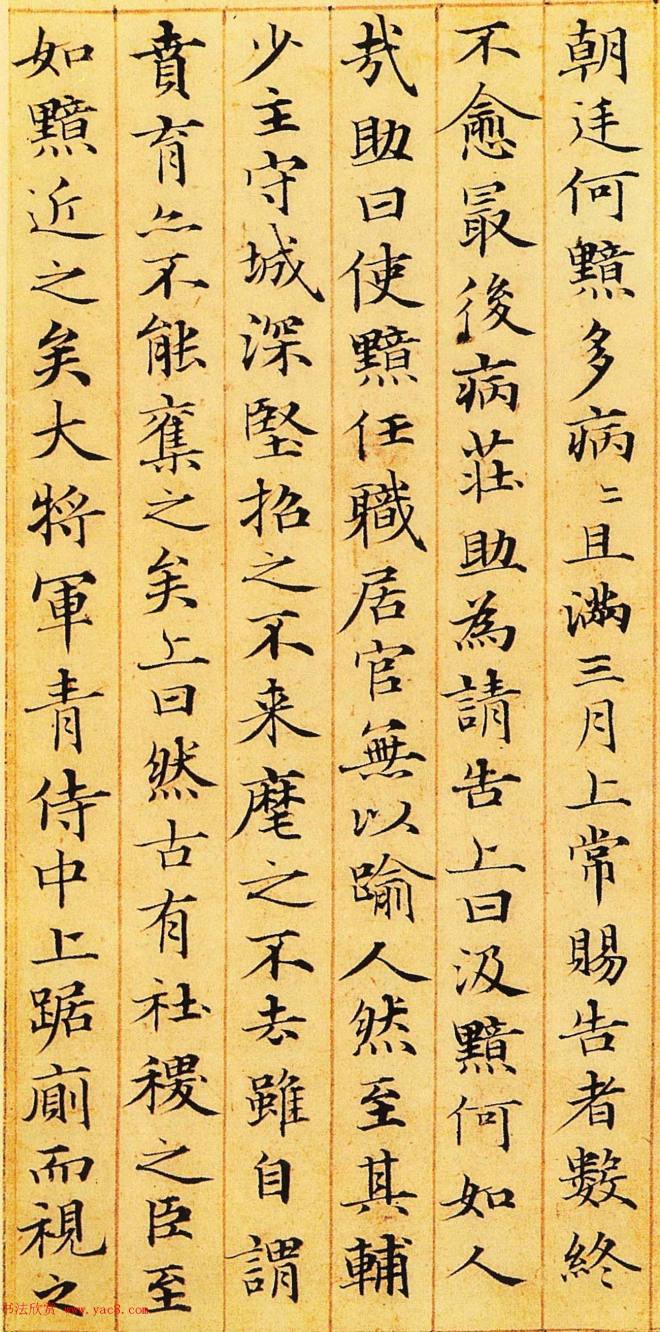 朝廷何黯多病〻且滿三月上常賜告者數終
不愈最後病莊助為請告上曰汲黯何如人
哉助曰使黯任職居官無以踰人然至其輔
少主守城深堅招之不来麾之不去雖自謂
賁育亦不能奪之矣上曰然古有社稷之臣至
如黯近之矣大將軍青侍中上踞廁而視之
书法欣赏 www.yac8.com